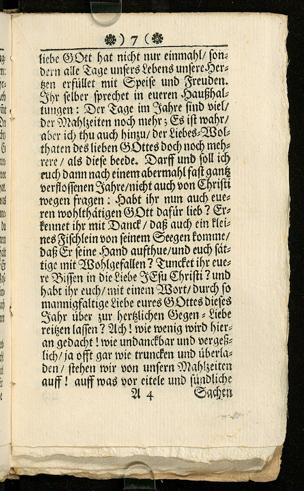 ❁ ) 7 ( ❁
liebe GOtt hat nicht nur einmahl/ son-
dern alle Tage unsers Lebens unsere Her-
tzen erfüllet mit Speise und Freuden.
Ihr selber sprechet in eueren Haußhal-
tungen: Der Tage im Jahre sind viel/
der Mahlzeiten noch mehr; Es ist wahr/
aber ich thu auch hinzu/ der Liebes-Wol-
thaten des lieben GOttes doch noch meh-
rere/ als diese beede. Darff und soll ich
euch dann nach einem abermahl fast gantz
verflossenen Jahre/ nicht auch von Christi
wegen fragen: Habt ihr nun auch eue-
ren wohlthätigen GOtt dafür lieb? Er-
kennet ihr mit Danck/ daß auch ein klei-
nes Fischlein von seinem Seegen komme/
daß Er seine Hand aufthue/ und euch sät-
tige mit Wohlgefallen? Tuncket ihr eue-
re Bissen in die Liebe JEsu Christi? und
habt ihr euch/ mit einem Wort/ durch so
mannigfaltige Liebe eures GOttes dieses
Jahr über zur hertzlichen Gegen-Liebe
reitzen lassen? Ach! wie wenig wird hier-
an gedacht! wie undanckbar und vergeß-
lich/ ja offt gar wie truncken und überla-
den/ stehen wir von unsern Mahlzeiten
auff! auff was vor eitele und sündliche
A 4 Sachen